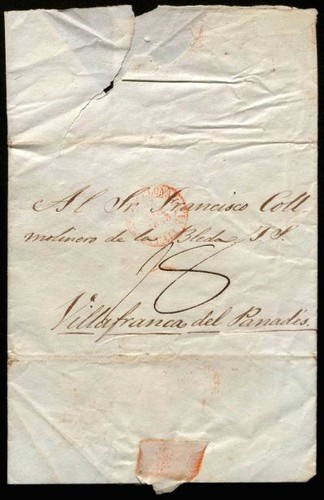 Al Sr. Francisco Coll
molinero de la Bleda
Villafranca del Panadés.